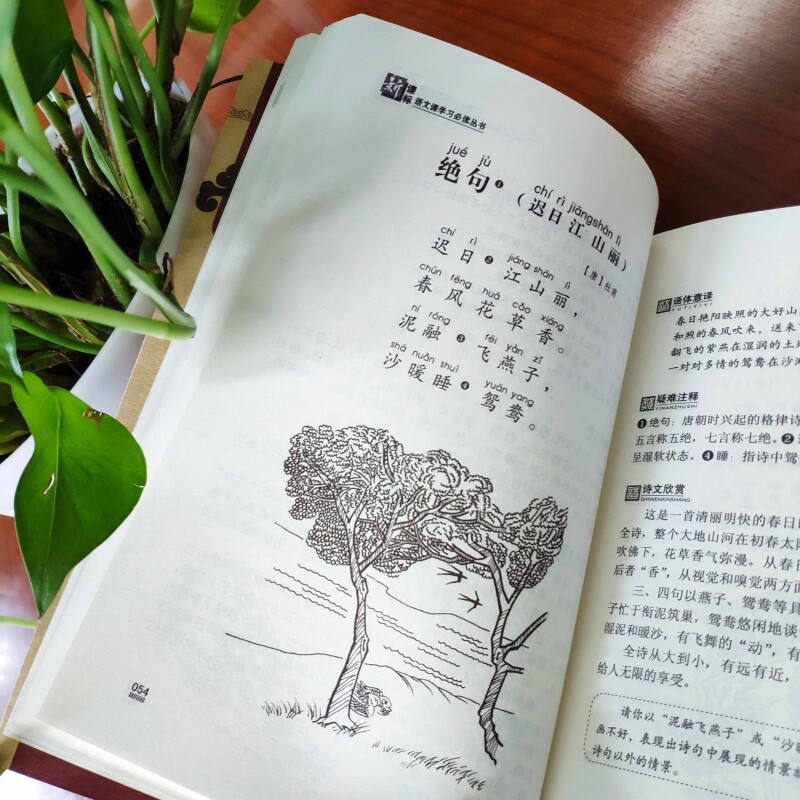 新课标 语文课学习必读丛书
jué jù chí rì jiāngshān lì
绝句❶（迟日江山丽）
【唐】杜甫
chí rì jiāng shān lì
迟日❷江山丽，
chūn fēng huā cǎo xiāng
春风花草香。
ní róng fēi yàn zǐ
泥融❸飞燕子，
shā nuǎn shuì yuān yang
沙暖睡❹鸳鸯。
054
语体意译
YUTIYIYI
春日艳阳映照的大好山
和煦的春风吹来，送来
翻飞的紫燕在湿润的土
一对对多情的鸳鸯在沙
疑难注释
YINANZHUSHI
❶绝句：唐朝时兴起的格律诗
五言称五绝，七言称七绝。❷
呈湿软状态。❹睡：指诗中鸳
诗文欣赏
SHIWENXINSHANG
这是一首清丽明快的春日
全诗，整个大地山河在初春太
吹佛下，花草香气弥漫。从春
后者“香”，从视觉和嗅觉两方面
三、四句以燕子、鸳鸯等具
子忙于衔泥筑巢，鸳鸯悠闲地谈
湿泥和暖沙，有飞舞的“动”，有
全诗从大到小，有远有近，
给人无限的享受。
请你以“泥融飞燕子”或“沙暖
画不好，表现出诗句中展现的情景
诗句以外的情景。